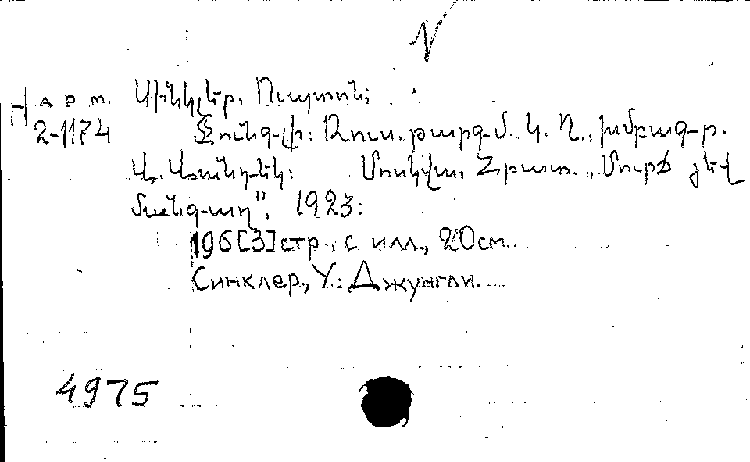 V
Н арм. Սինկլեր, Ուպտոն:
2-1174 Ջունգլի: Ռուս. թարգմ. Կ. Ղ., խմբագր.
Ա. Առանդեկ: Մոսկվա, Հրատ. „Մուրճ յեվ
մանգաղ", 1923:
196[3]стр., с илл., 20см.
Синклер, У.: Джунгли.
4975